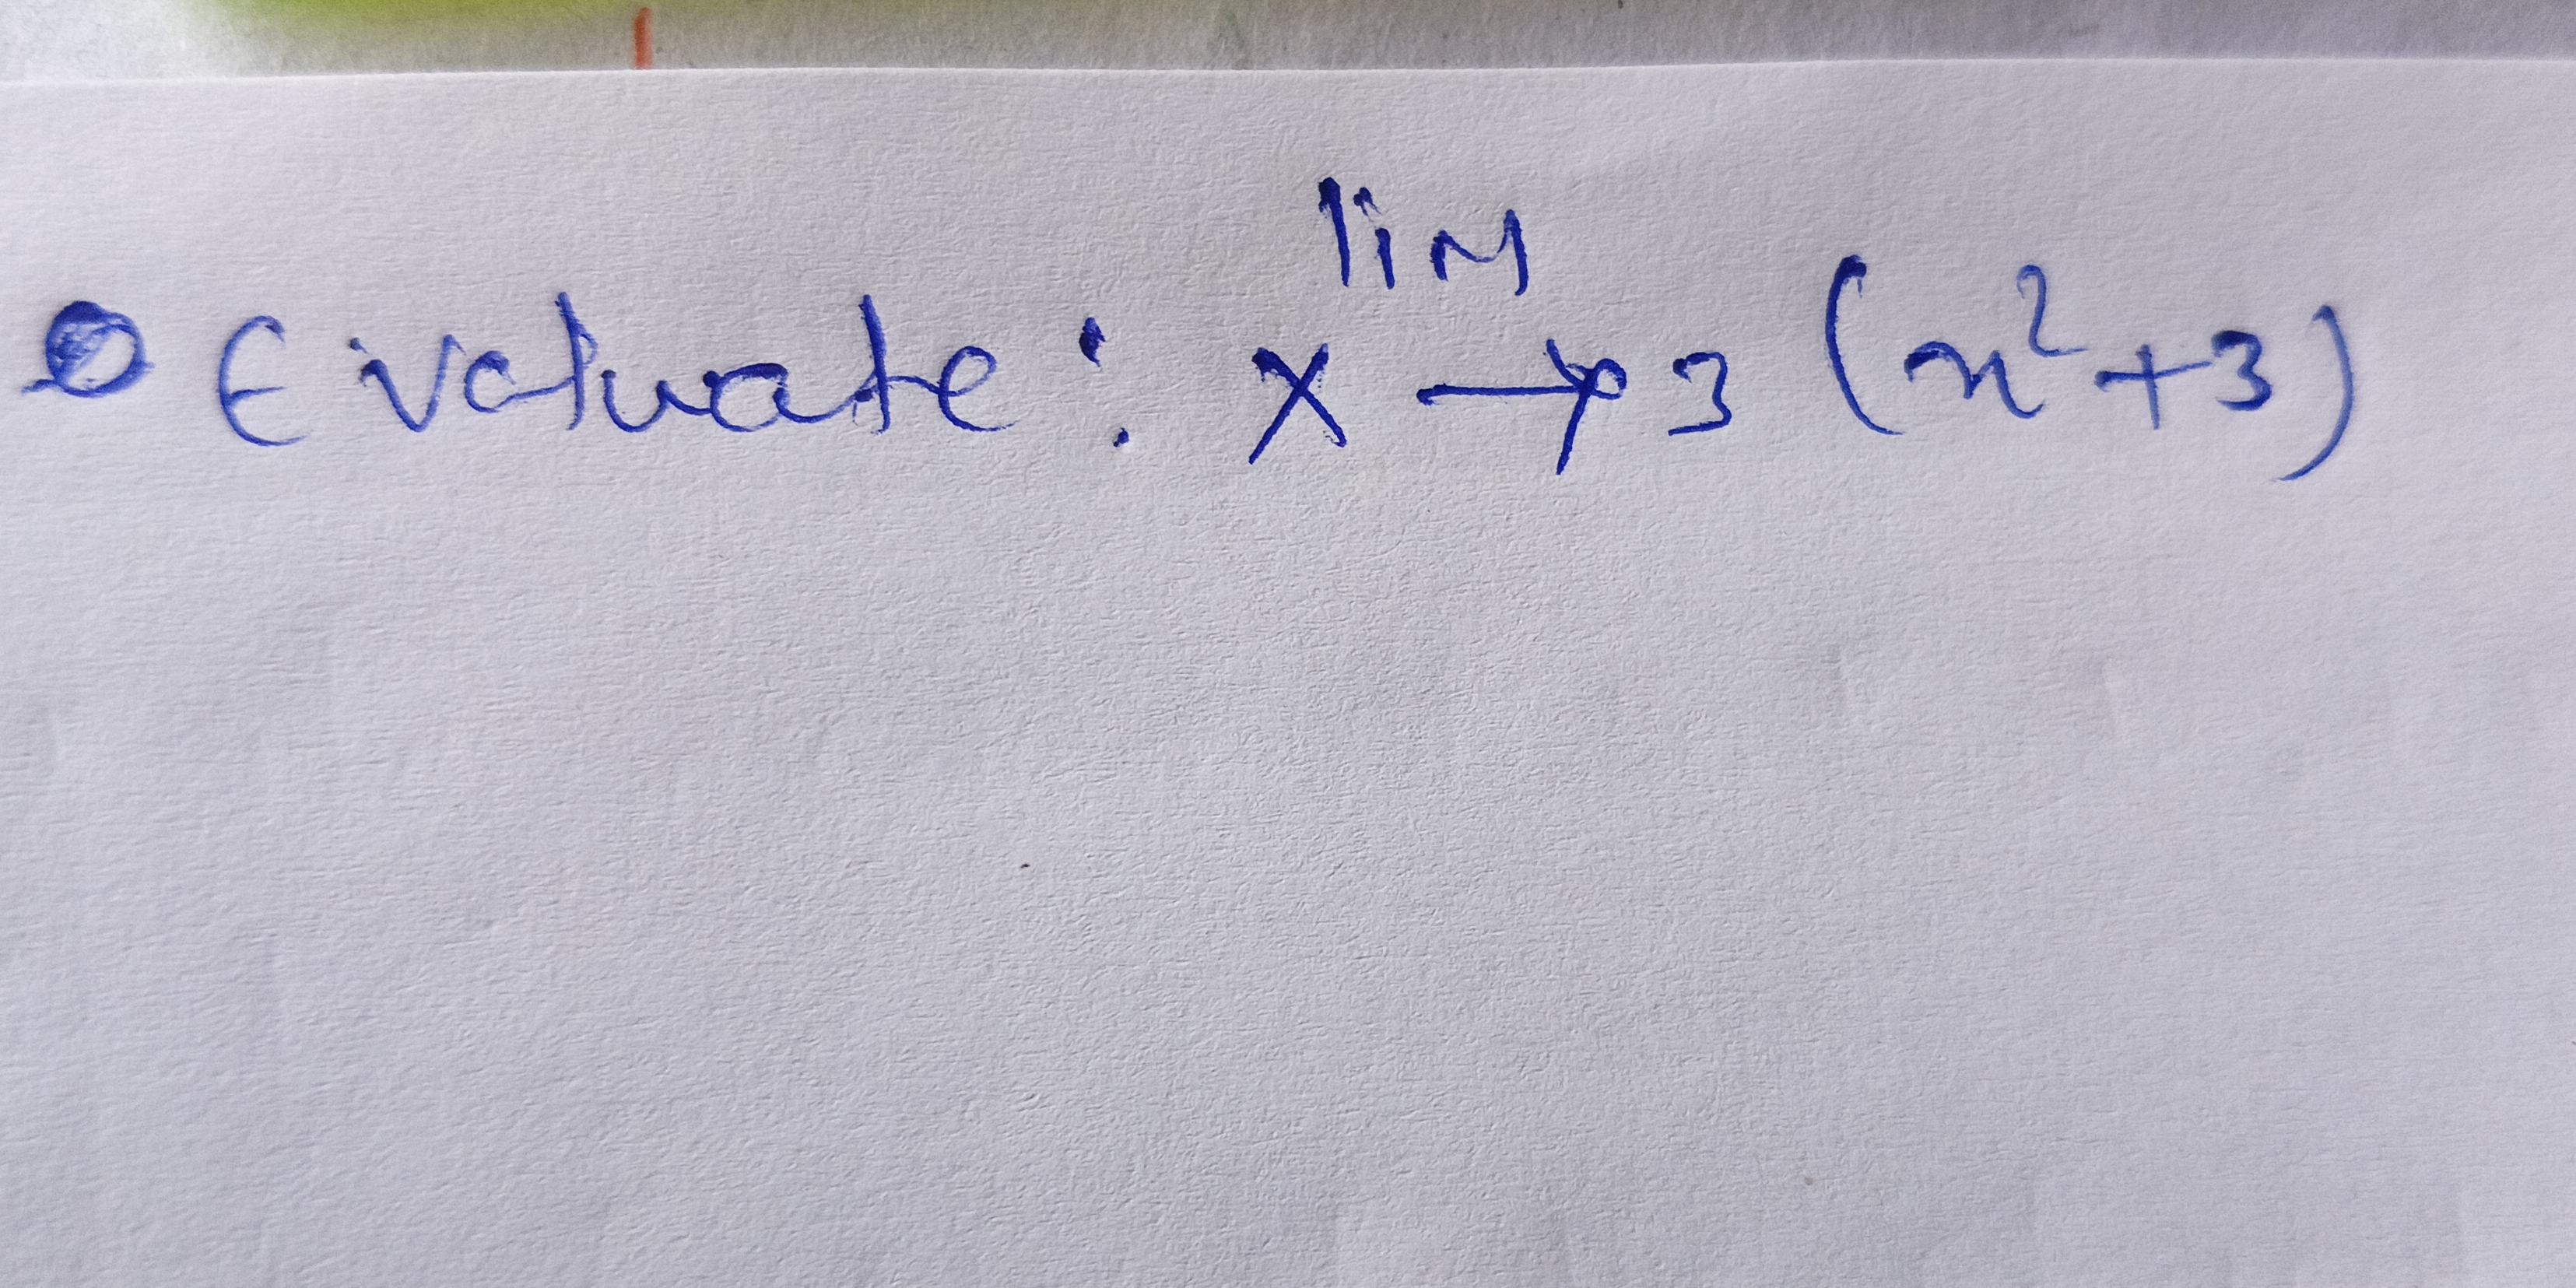 lim
Evaluate: x → 3 (x²+3)